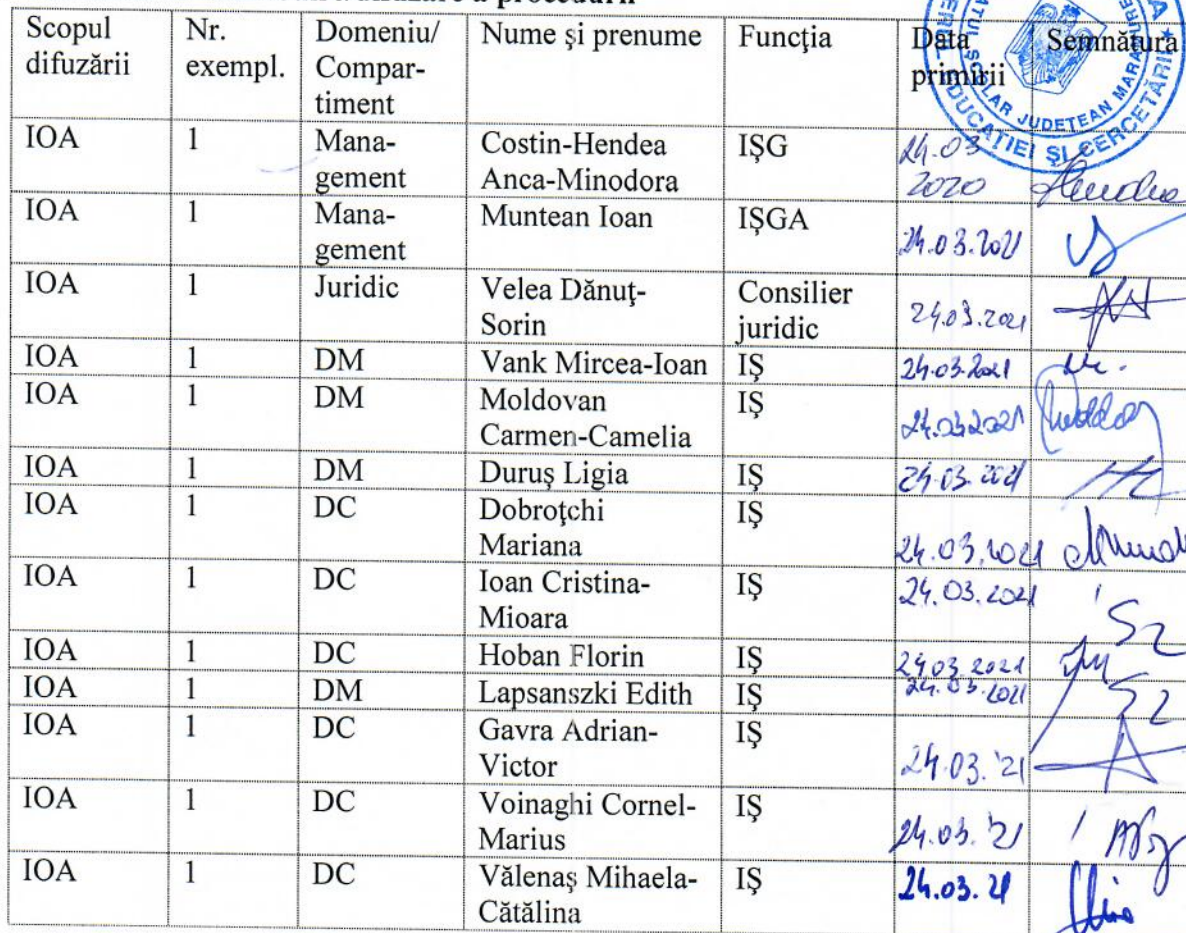 difuzare a procedurii
Scopul difuzării Nr. exempl. Domeniu/ Compar- timent Nume şi prenume Funcţia Data primirii Semnătura
IOA 1 Mana- gement Costin-Hendea Anca-Minodora IŞG 24.03 2020
IOA 1 Mana- gement Muntean Ioan IŞGA 24.03.2021
IOA 1 Juridic Velea Dănuţ- Sorin Consilier juridic 24.03.2021
IOA 1 DM Vank Mircea-Ioan IŞ 24.03.2021
IOA 1 DM Moldovan Carmen-Camelia IŞ 24.03.2021
IOA 1 DM Duruş Ligia IŞ 24.03.2021
IOA 1 DC Dobroţchi Mariana IŞ 24.03.2021
IOA 1 DC Ioan Cristina- Mioara IŞ 24.03.2021
IOA 1 DC Hoban Florin IŞ 24.03.2021
IOA 1 DM Lapsanszki Edith IŞ 24.03.2021
IOA 1 DC Gavra Adrian- Victor IŞ 24.03.'21
IOA 1 DC Voinaghi Cornel- Marius IŞ 24.03.'21
IOA 1 DC Vălenaş Mihaela- Cătălina IŞ 24.03.21
EDUCAŢIEI ŞI CERCETĂRII
ŞCOLAR JUDEŢEAN